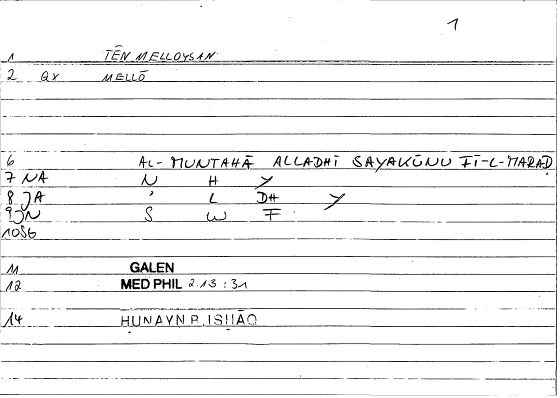 1
1 TĒN MELLOYSAN
2 QV MELLŌ
6 AL-MUNTAHĀ ALLADHĪ SAYAKŪNU FĪ-L-MARAḌ
7 NA N H Y
8 JA ' L DH Y
9 JN S W F
10 SG
11 GALEN
12 MED PHIL 2.13:31
14 ḤUNAYN B. ISḤĀQ